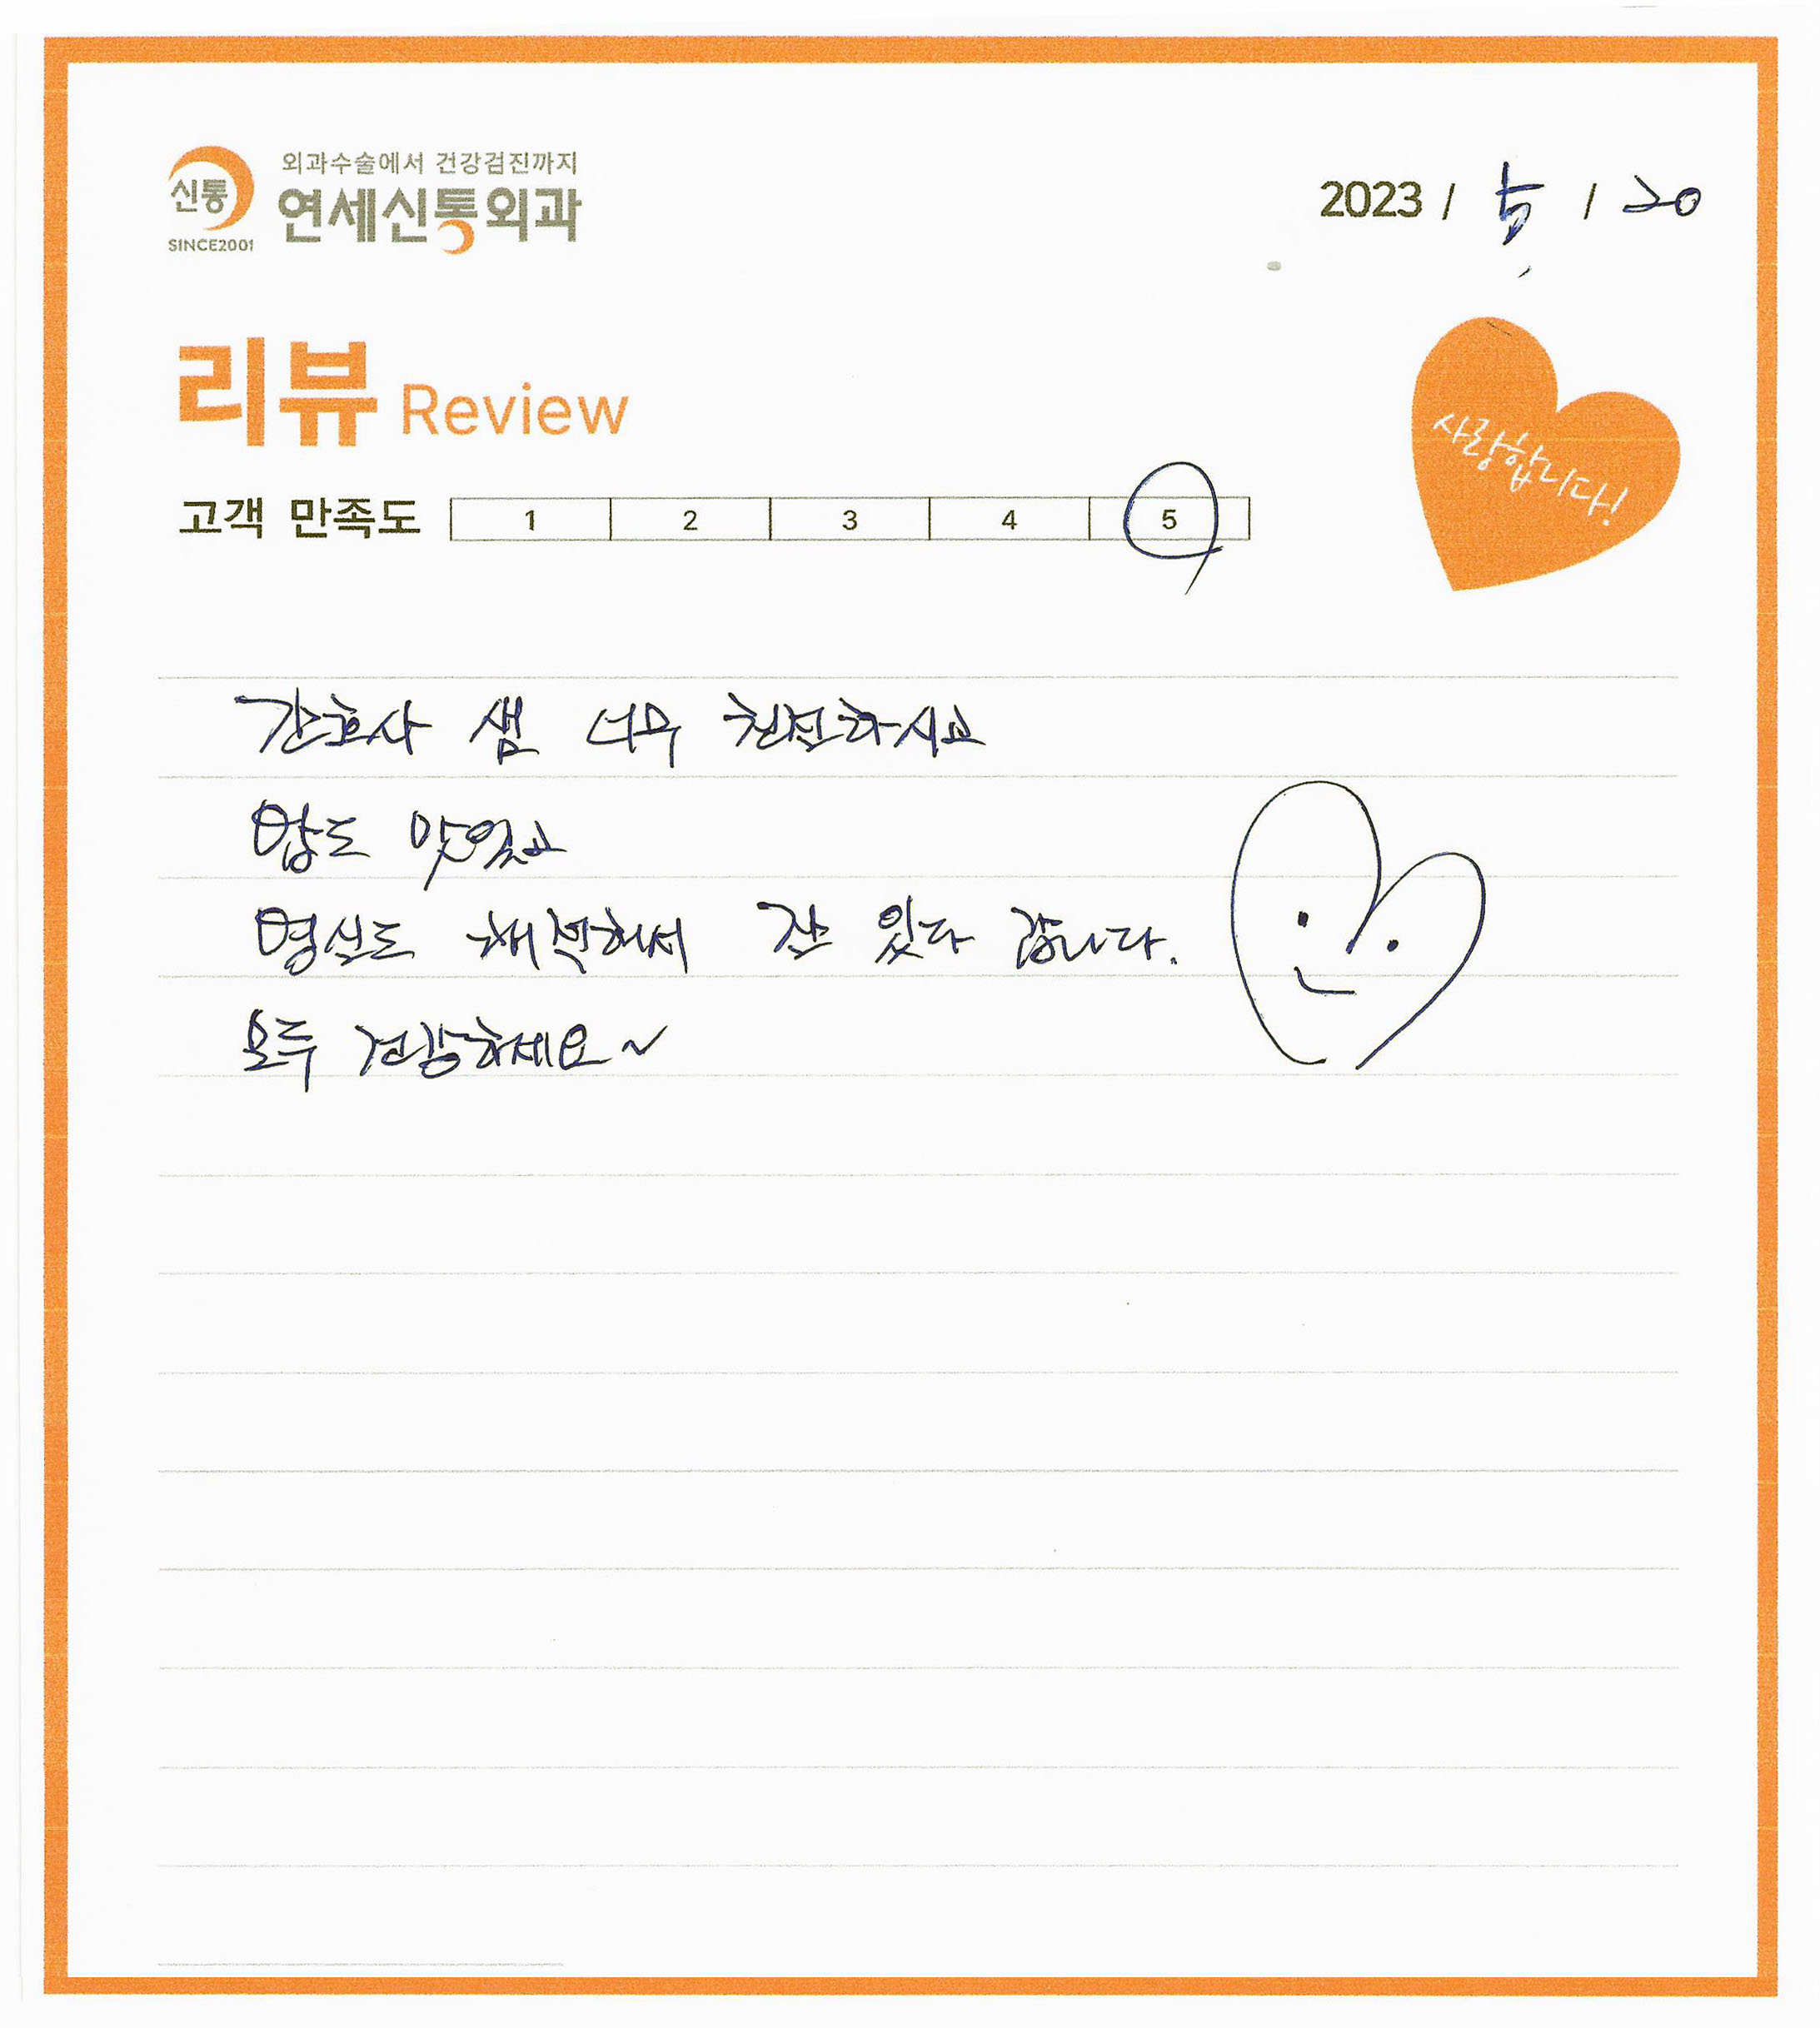 외과수술에서 건강검진까지
신통
연세신통외과
SINCE2001
2023 / 5 / 20
리뷰 Review
사랑합니다!
고객 만족도 1 2 3 4 5
간호사 샘 너무 친절하시고
밥도 맛있고
병실도 쾌적해서 잘 있다 갑니다.
모두 건강하세요~